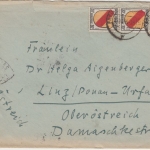 Fräulein
Dr Helga Aigenberger
Linz/Donau-Urfa
Oberöstreich
Damaschkestr